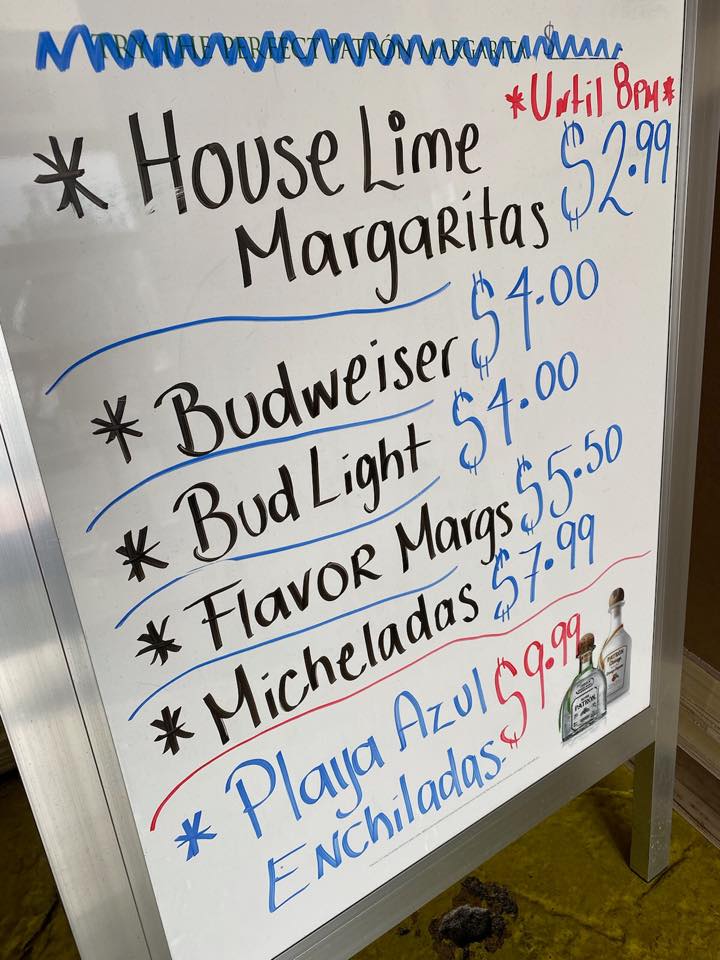 TRY THE PERFECT PATRÓN MARGARITA $
*Until 8PM*
* House Lime $2.99
Margaritas
* Budweiser $4.00
* Bud Light $4.00
* Flavor Margs $5.50
* Micheladas $7.99
* Playa Azul $9.99
Enchiladas
PATRÓN
PATRÓN